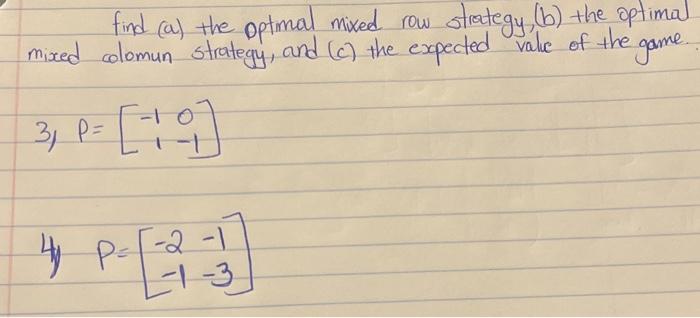 find (a) the optimal mixed row strategy, (b) the optimal
mixed colomun strategy, and (c) the expected value of the game.
3, P= [-1 0
1 -1]
4, P= [-2 -1
-1 -3]